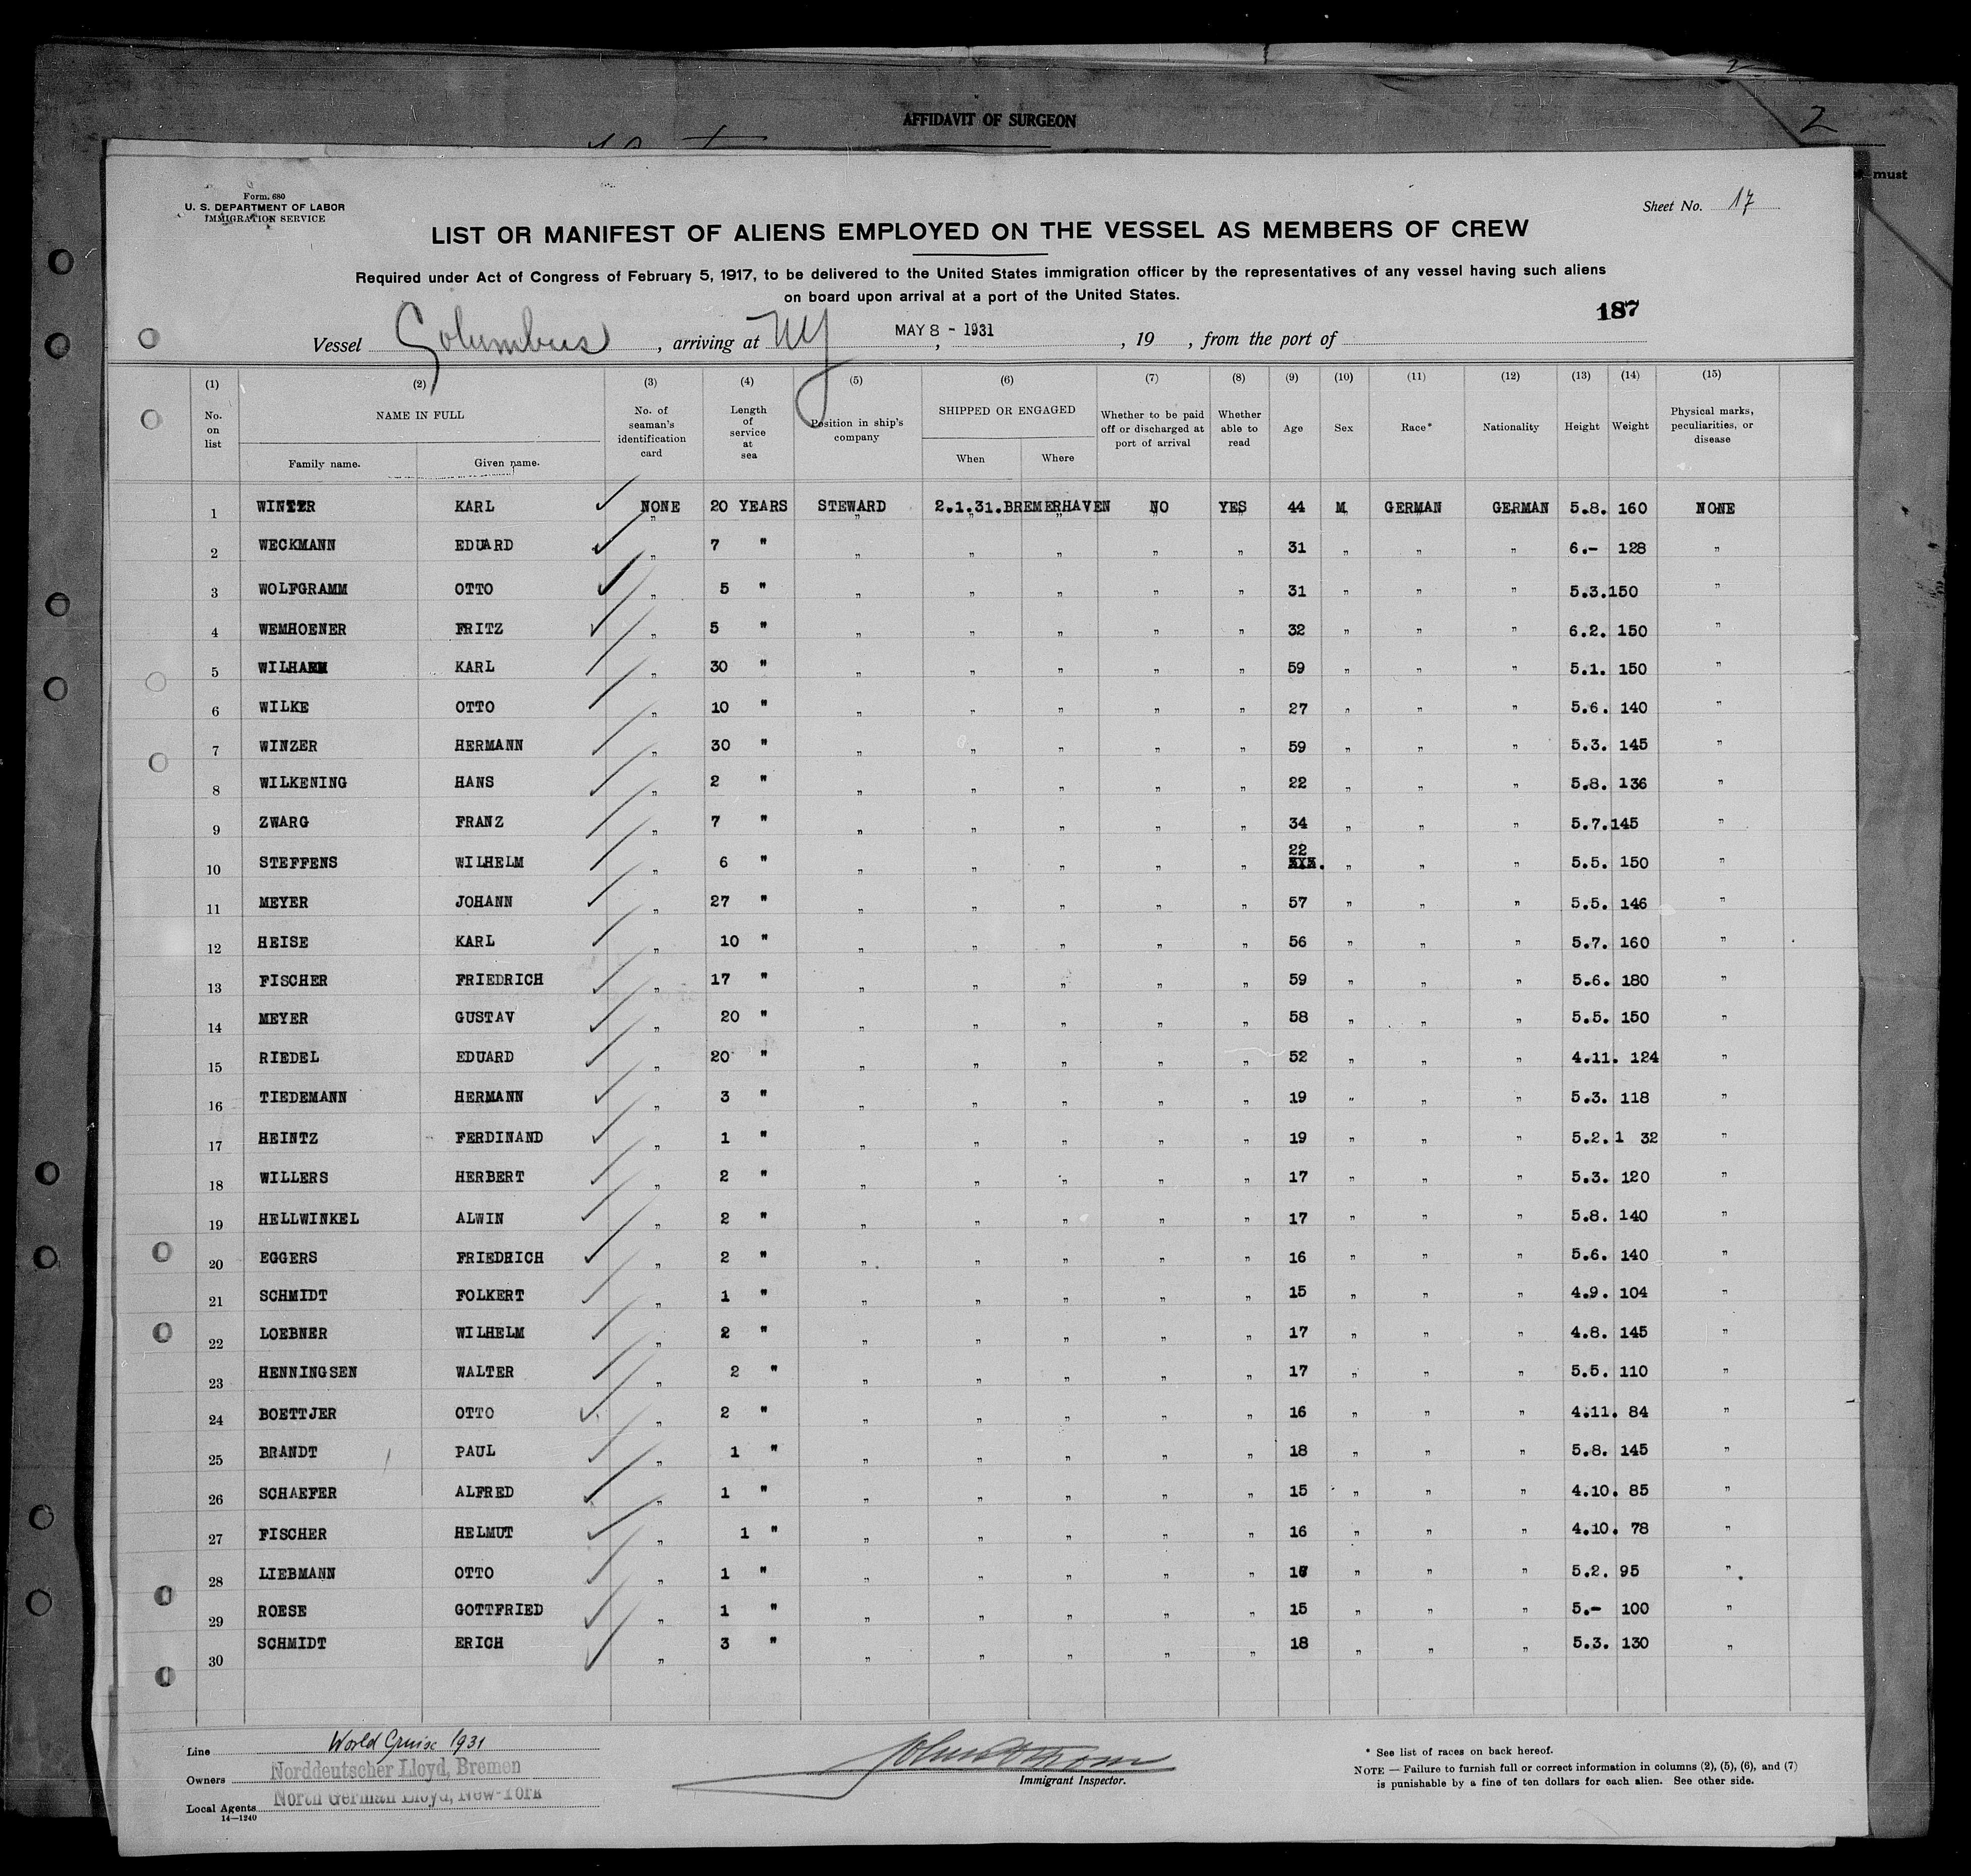 2
AFFIDAVIT OF SURGEON
2
must
Form. 680
U. S. DEPARTMENT OF LABOR
IMMIGRATION SERVICE
Sheet No. 17
LIST OR MANIFEST OF ALIENS EMPLOYED ON THE VESSEL AS MEMBERS OF CREW
Required under Act of Congress of February 5, 1917, to be delivered to the United States immigration officer by the representatives of any vessel having such aliens
on board upon arrival at a port of the United States.
187
Vessel Columbus, arriving at NY, MAY 8 - 1931, 19 , from the port of
(1) (2) (3) (4) (5) (6) (7) (8) (9) (10) (11) (12) (13) (14) (15)
No. on list NAME IN FULL Family name. Given name. No. of seaman's identification card Length of service at sea Position in ship's company SHIPPED OR ENGAGED When Where Whether to be paid off or discharged at port of arrival Whether able to read Age Sex Race* Nationality Height Weight Physical marks, peculiarities, or disease
1 WINTER KARL NONE 20 YEARS STEWARD 2.1.31. BREMERHAVEN NO YES 44 M GERMAN GERMAN 5.8. 160 NONE
2 WECKMANN EDUARD " 7 " " " " " " 31 " " " 6.- 128 "
3 WOLFGRAMM OTTO " 5 " " " " " " 31 " " " 5.3. 150 "
4 WEMHOENER FRITZ " 5 " " " " " " 32 " " " 6.2. 150 "
5 WILHARM KARL " 30 " " " " " " 59 " " " 5.1. 150 "
6 WILKE OTTO " 10 " " " " " " 27 " " " 5.6. 140 "
7 WINZER HERMANN " 30 " " " " " " 59 " " " 5.3. 145 "
8 WILKENING HANS " 2 " " " " " " 22 " " " 5.8. 136 "
9 ZWARG FRANZ " 7 " " " " " " 34 " " " 5.7. 145 "
10 STEFFENS WILHELM " 6 " " " " " " 22 " " " 5.5. 150 "
11 MEYER JOHANN " 27 " " " " " " 57 " " " 5.5. 146 "
12 HEISE KARL " 10 " " " " " " 56 " " " 5.7. 160 "
13 FISCHER FRIEDRICH " 17 " " " " " " 59 " " " 5.6. 180 "
14 MEYER GUSTAV " 20 " " " " " " 58 " " " 5.5. 150 "
15 RIEDEL EDUARD " 20 " " " " " " 52 " " " 4.11. 124 "
16 TIEDEMANN HERMANN " 3 " " " " " " 19 " " " 5.3. 118 "
17 HEINTZ FERDINAND " 1 " " " " " " 19 " " " 5.2. 1 32 "
18 WILLERS HERBERT " 2 " " " " " " 17 " " " 5.3. 120 "
19 HELLWINKEL ALWIN " 2 " " " " " " 17 " " " 5.8. 140 "
20 EGGERS FRIEDRICH " 2 " " " " " " 16 " " " 5.6. 140 "
21 SCHMIDT FOLKERT " 1 " " " " " " 15 " " " 4.9. 104 "
22 LOEBNER WILHELM " 2 " " " " " " 17 " " " 4.8. 145 "
23 HENNINGSEN WALTER " 2 " " " " " " 17 " " " 5.5. 110 "
24 BOETTJER OTTO " 2 " " " " " " 16 " " " 4.11. 84 "
25 BRANDT PAUL " 1 " " " " " " 18 " " " 5.8. 145 "
26 SCHAEFER ALFRED " 1 " " " " " " 15 " " " 4.10. 85 "
27 FISCHER HELMUT " 1 " " " " " " 16 " " " 4.10. 78 "
28 LIEBMANN OTTO " 1 " " " " " " " " " 5.2. 95 "
29 ROESE GOTTFRIED " 1 " " " " " " 15 " " " 5.- 100 "
30 SCHMIDT ERICH " 3 " " " " " " 18 " " " 5.3. 130 "
Line World Cruise 1931
Owners Norddeutscher Lloyd, Bremen
Local Agents North German Lloyd, New-York
14—1240
Immigrant Inspector.
* See list of races on back hereof.
NOTE — Failure to furnish full or correct information in columns (2), (5), (6), and (7)
is punishable by a fine of ten dollars for each alien. See other side.